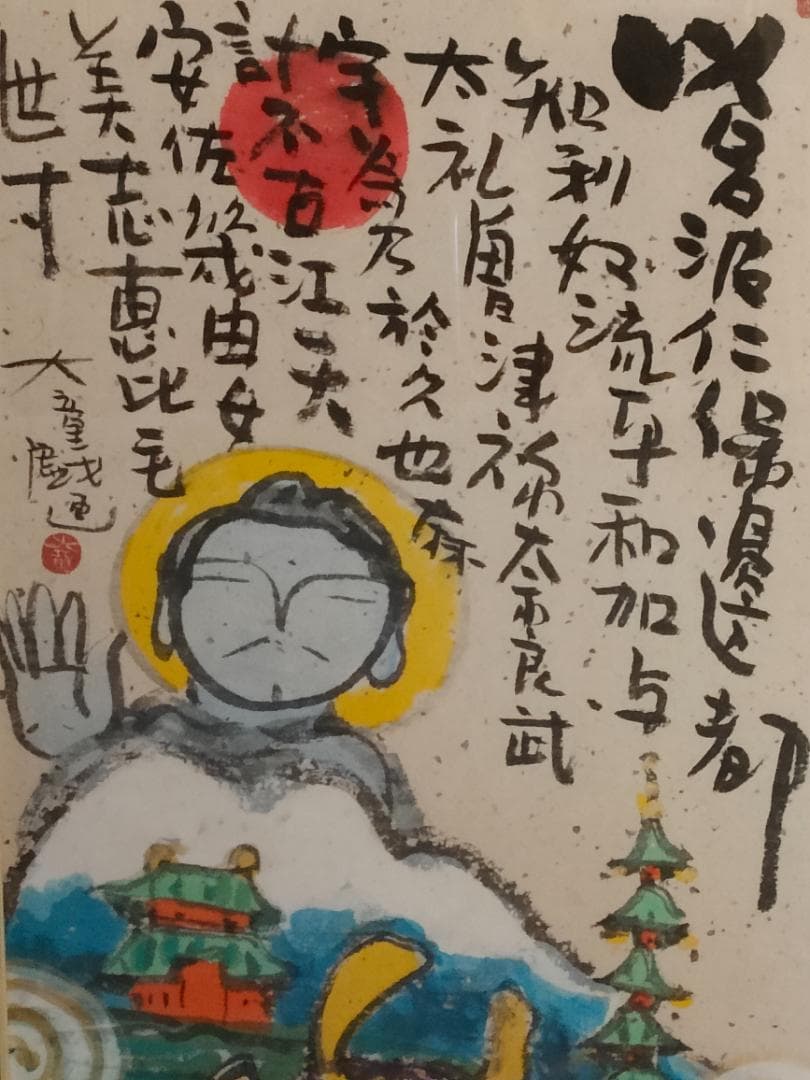 以呂波仁保邊都
知利奴流乎和加与
太礼曽津祢奈良武
宇為乃於久也麻
計不古江天
安佐幾由女
美志恵比毛
世寸